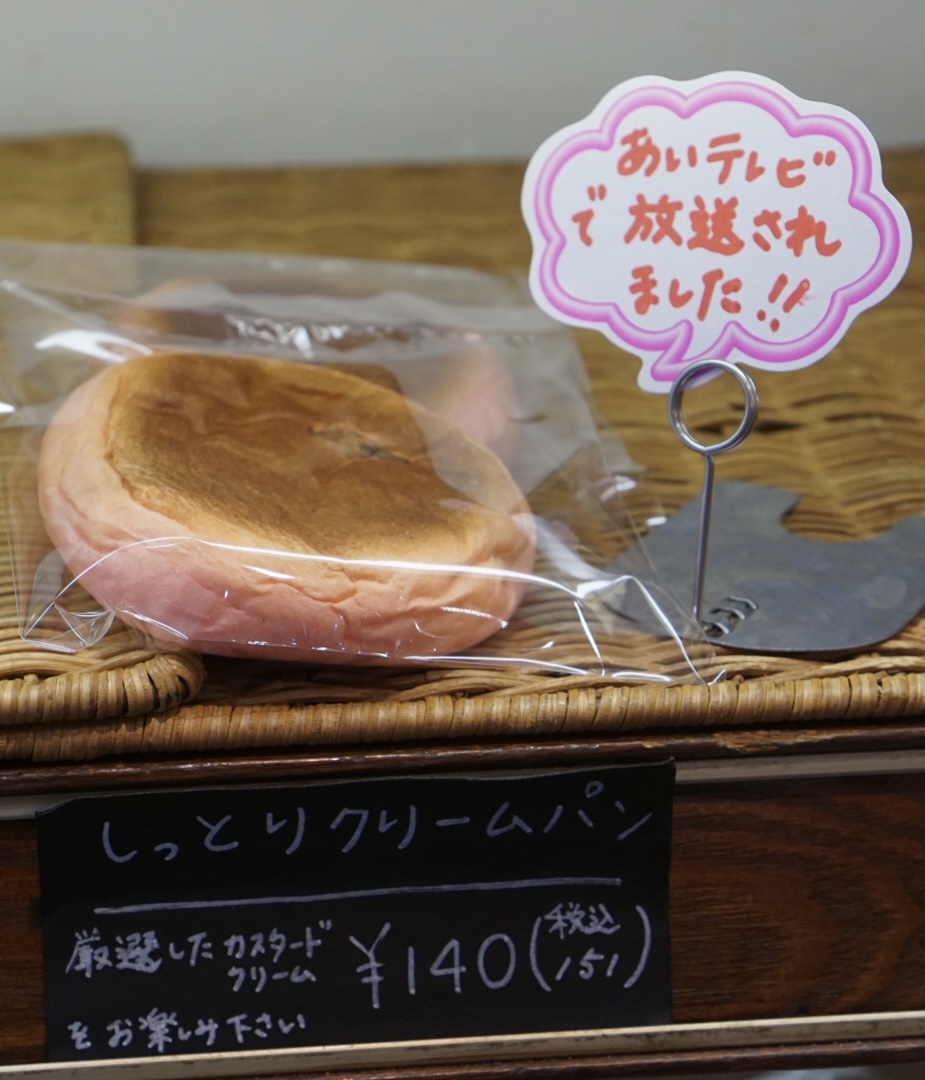 あいテレビ
で放送され
ました!!
しっとりクリームパン
厳選したカスタード
クリーム
をお楽しみ下さい
¥140(税込
151)